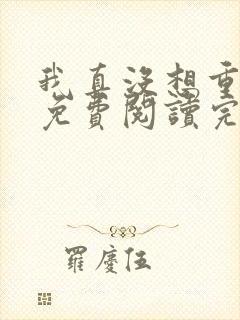 我真没想重
免費閱讀完
羅慶伍